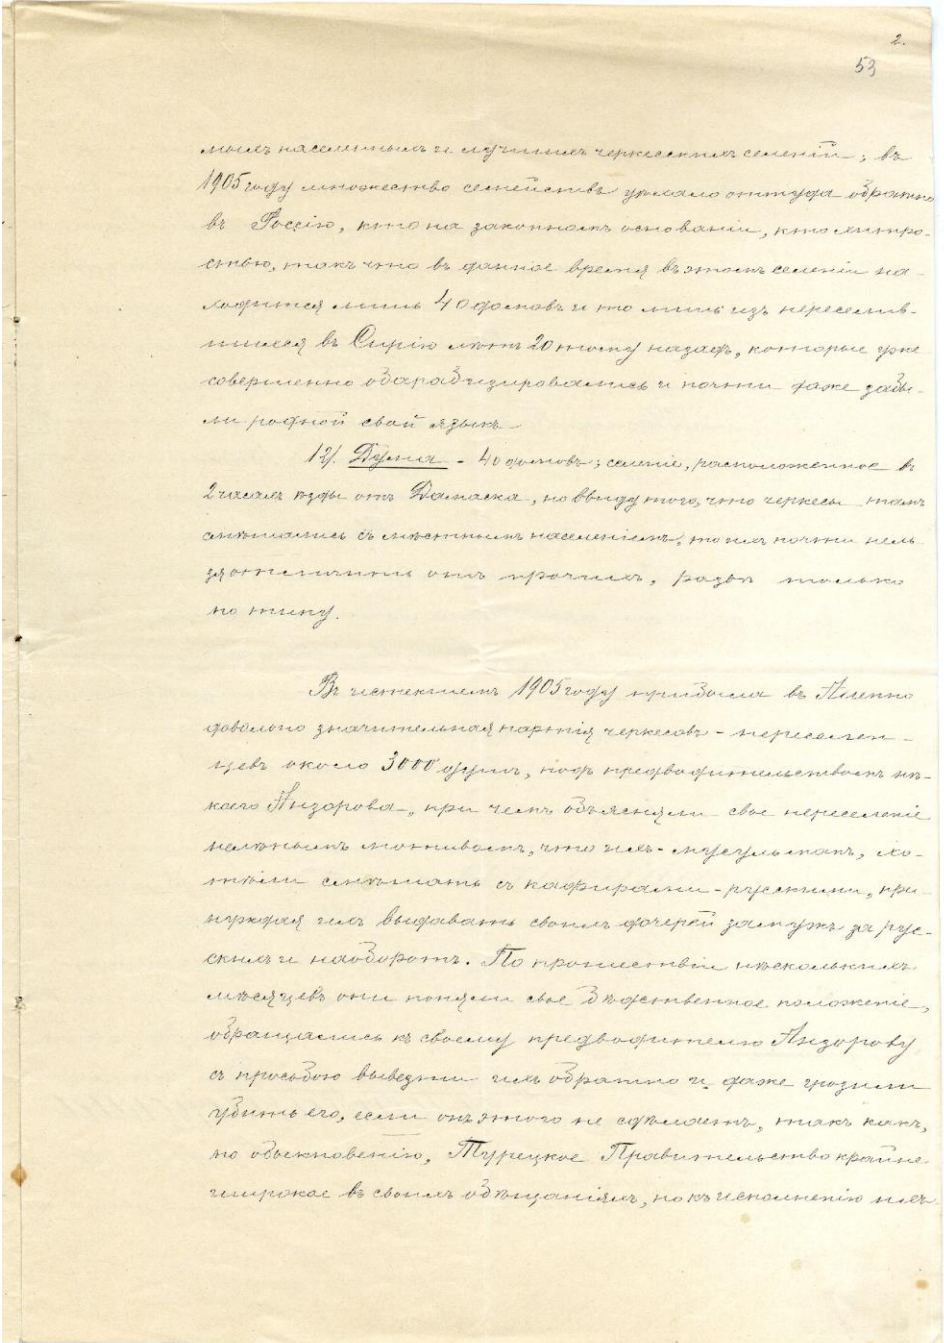 2.
53
мымъ населеннымъ и лучшимъ черкесскимъ селеній; въ
1905 году множество семействъ уѣхало оттуда обратно
въ Россію, кто на законномъ основаніи, кто хитро-
стью, такъ что въ данное время въ этомъ селеніи на-
ходится лишь 40 домовъ и то лишь изъ переселив-
шихся въ Сирію лѣтъ 20 тому назадъ, которые уже
совершенно обарабизировались и почти даже забы-
ли родной свой языкъ.
12/. Дума - 40 домовъ; селеніе, расположенное въ
2 часахъ ѣзды отъ Дамаска, но ввиду того, что черкесы тамъ
смѣшались съ мѣстнымъ населеніемъ, то ихъ почти нель-
зя отличить отъ прочихъ, развѣ только
по типу.
Въ истекшемъ 1905 году прибыла въ Алеппо
довольно значительная партія черкесовъ - переселен-
цевъ около 3000 душъ, подъ предводительствомъ нѣ-
коего Анзорова, при чемъ объясняли свое переселеніе
нелѣпымъ мотивомъ, что ихъ - мусульманъ, хо-
тѣли смѣшать съ кафирами - русскими, при-
нуждая ихъ выдавать своихъ дочерей замужъ за рус-
скихъ и наоборотъ. По прошествіи нѣсколькихъ
мѣсяцевъ они поняли свое бѣдственное положеніе,
обращались къ своему предводителю Анзорову
съ просьбою вывезти ихъ обратно и даже грозили
убить его, если онъ этого не сдѣлаетъ, такъ какъ,
по обыкновенію, Турецкое Правительство крайне
широкое въ своихъ обѣщаніяхъ, но къ исполненію ихъ